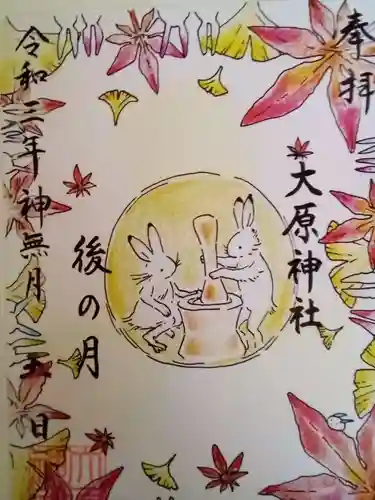 奉拝
大原神社
後の月
令和三年神無月五日